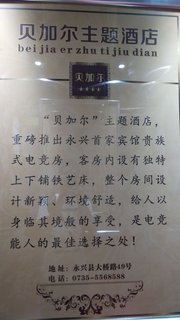 贝加尔主题酒店
beijiaerzhutijiudian
贝加尔
★★★★
“贝加尔”主题酒店，
重磅推出永兴首家宾馆贵族
式电竞房，客房内设有独特
上下铺铁艺床，整个房间设
计新颖，环境舒适，给人以
身临其境般的享受，是电竞
能人的最佳选择之处！
地址：永兴县大桥路49号
电话：0735-5568588